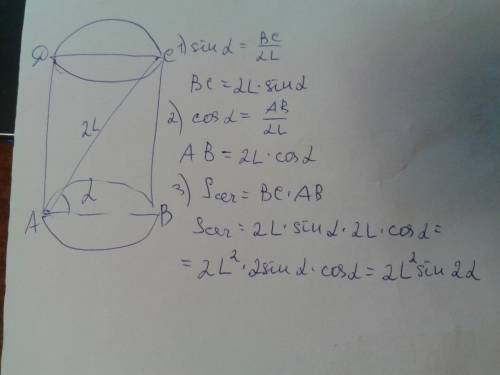 D
C
2L
α
A
B
1) sin α = BC/2L
BC = 2L · sin α
2) cos α = AB/2L
AB = 2L · cos α
3) Sсег = BC · AB
Sсег = 2L · sin α · 2L · cos α =
= 2L² · 2 sin α · cos α = 2L² sin 2α